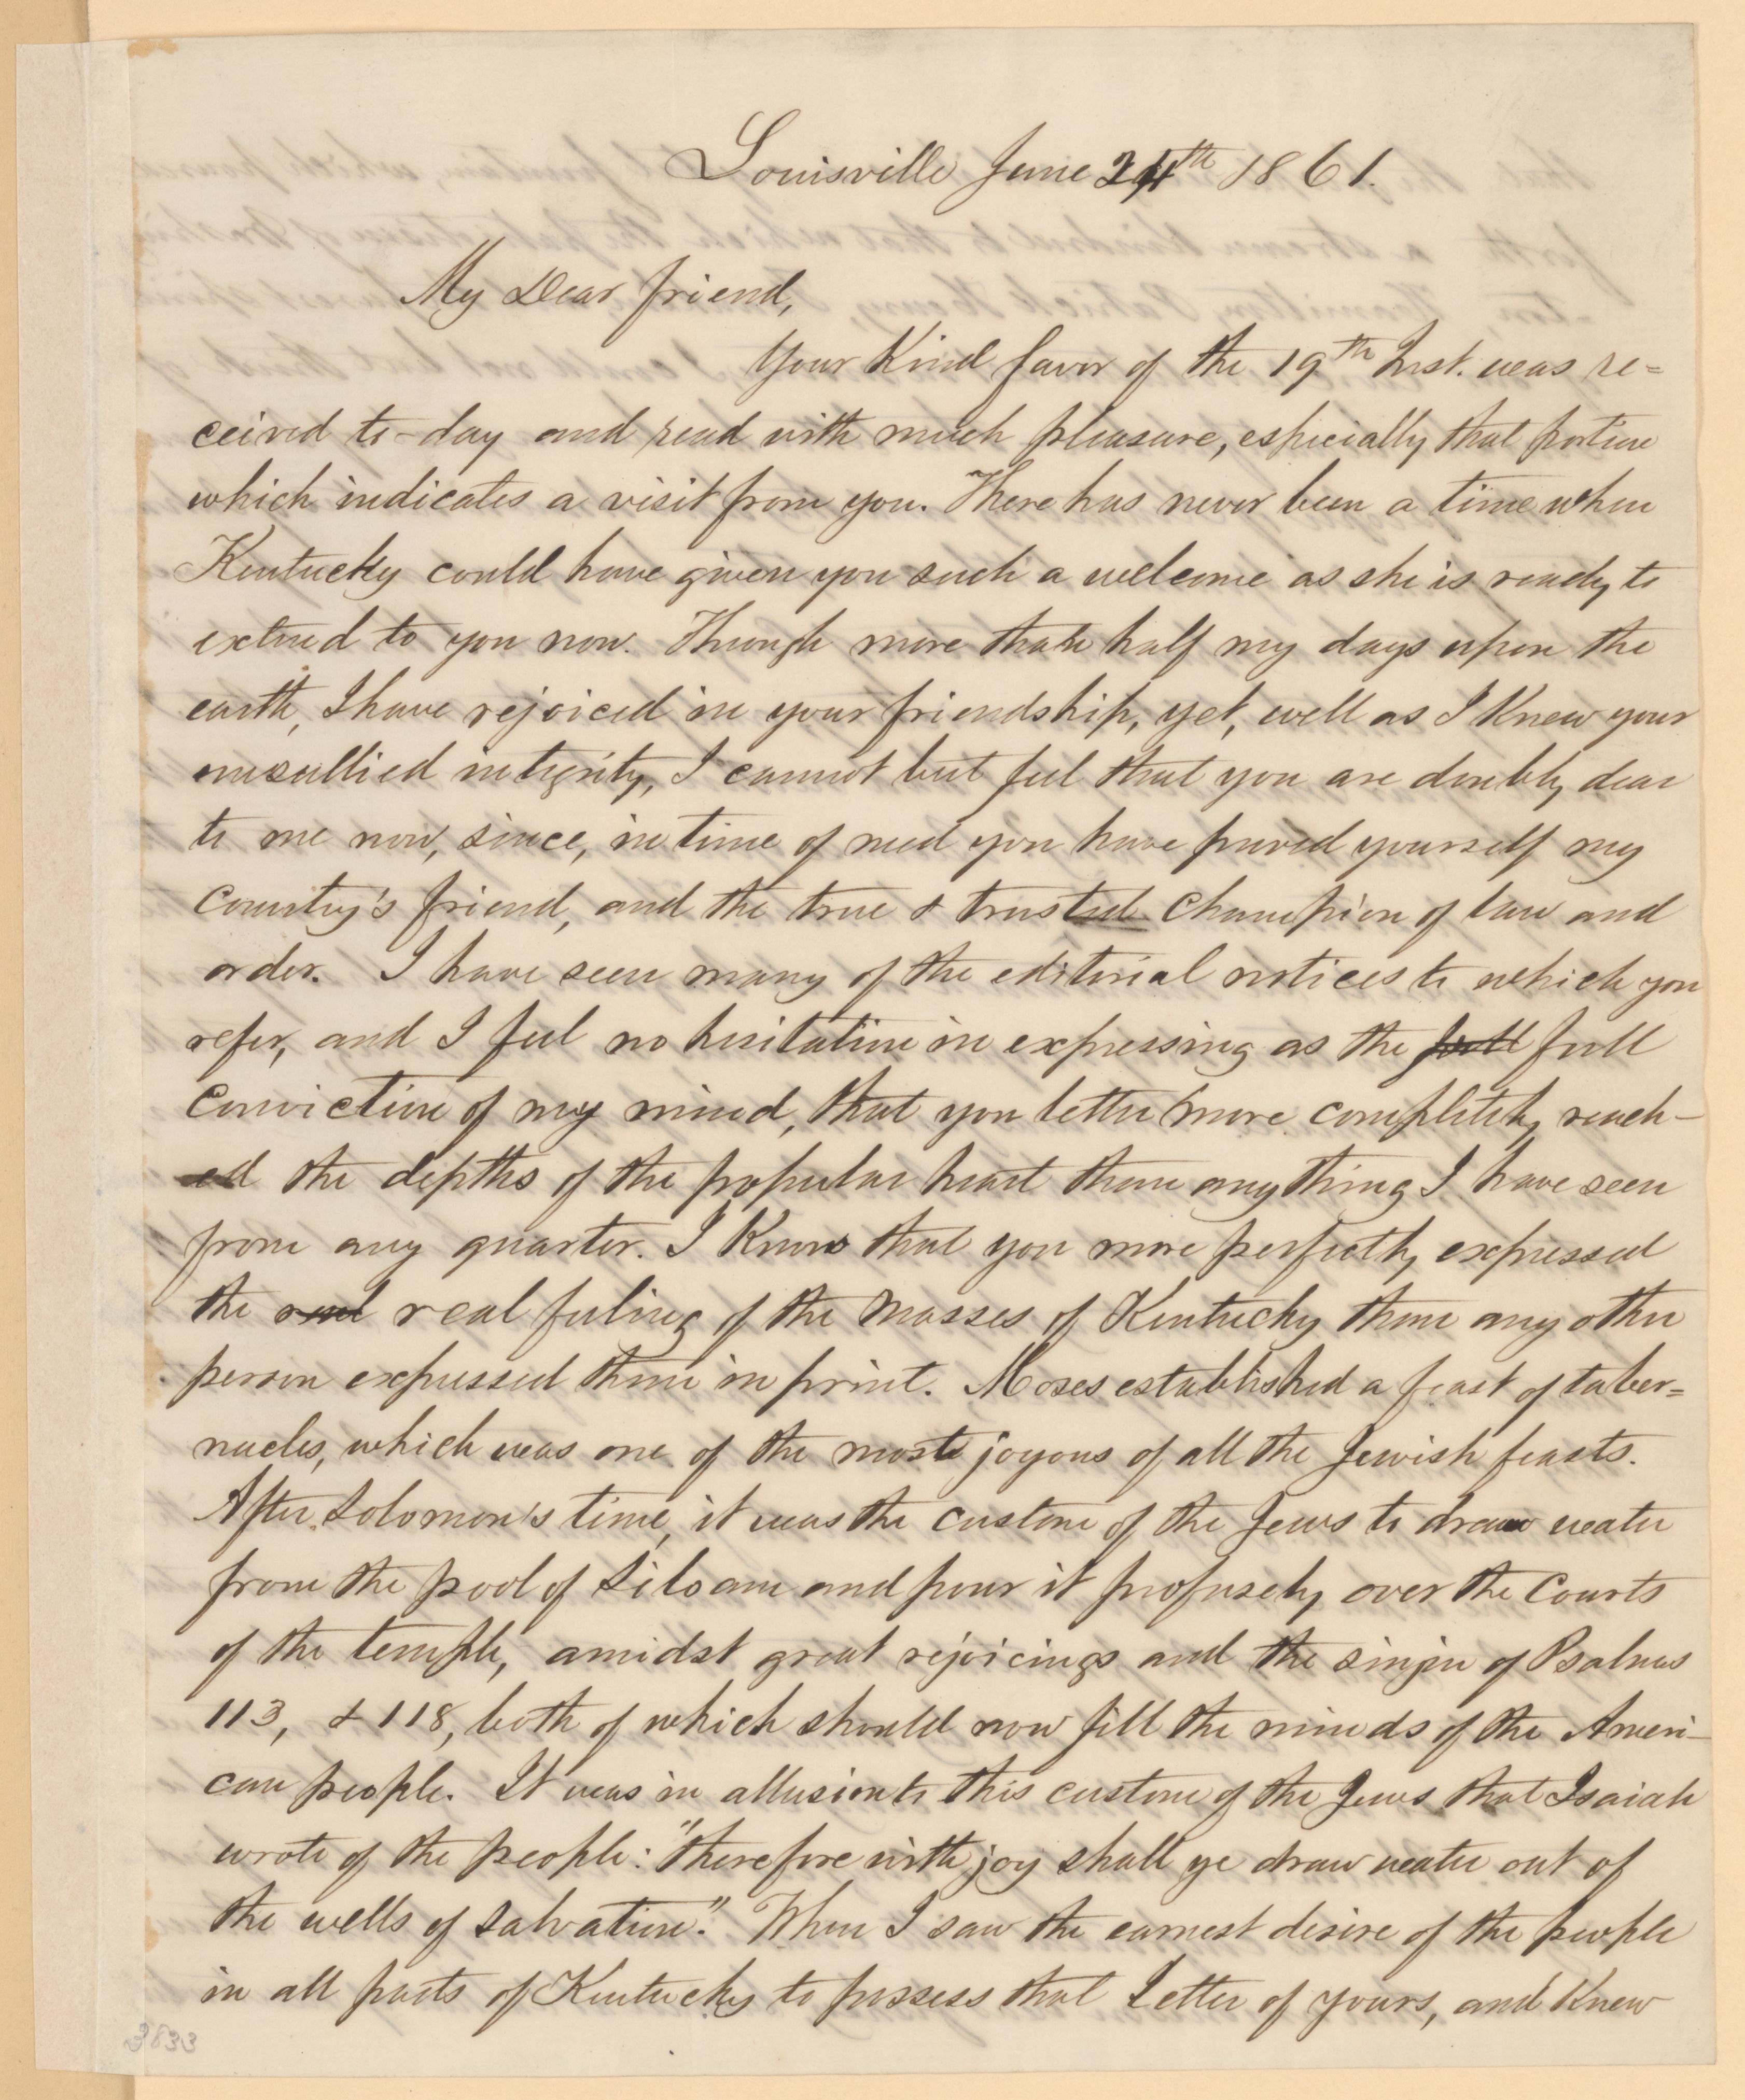 Louisville June 24th 1861.
My Dear friend,
Your Kind favor of the 19th Inst. was re=
ceived to-day and read with much pleasure, especially that portion
which indicates a visit from you. There has never been a time when
Kentucky could have given you such a welcome as she is ready to
extend to you now. Through more than half my days upon the
earth, I have rejoiced in your friendship, yet, well as I Knew your
unsullied integrity, I cannot but feel that you are doubly dear
to me now, since, in time of need you have proved yourself my
Country's friend, and the true & trusted Champion of law and
order. I have seen many of the editorial notices to which you
refer, and I feel no hesitation in expressing as the full full
Conviction of my mind, that you letter more completely reach-
ed the depths of the popular heart than any thing I have seen
from any quarter. I Know that you more perfectly expressed
the real real feeling of the Masses of Kentucky than any other
person expressed them in print. Moses established a feast of taber=
nacles, which was one of the most joyous of all the Jewish feasts.
After Solomon's time, it was the custom of the Jews to draw water
from the pool of Siloam and pour it profusely over the Courts
of the temple, amidst great rejoicings and the singin of Psalms
113, & 118, both of which should now fill the minds of the Ameri-
can people. It was in allusion to this custom of the Jews that Isaiah
wrote of the people: "therefore with joy shall ye draw water out of
the wells of salvation". When I saw the earnest desire of the people
in all parts of Kentucky to possess that Letter of yours, and Knew
3833